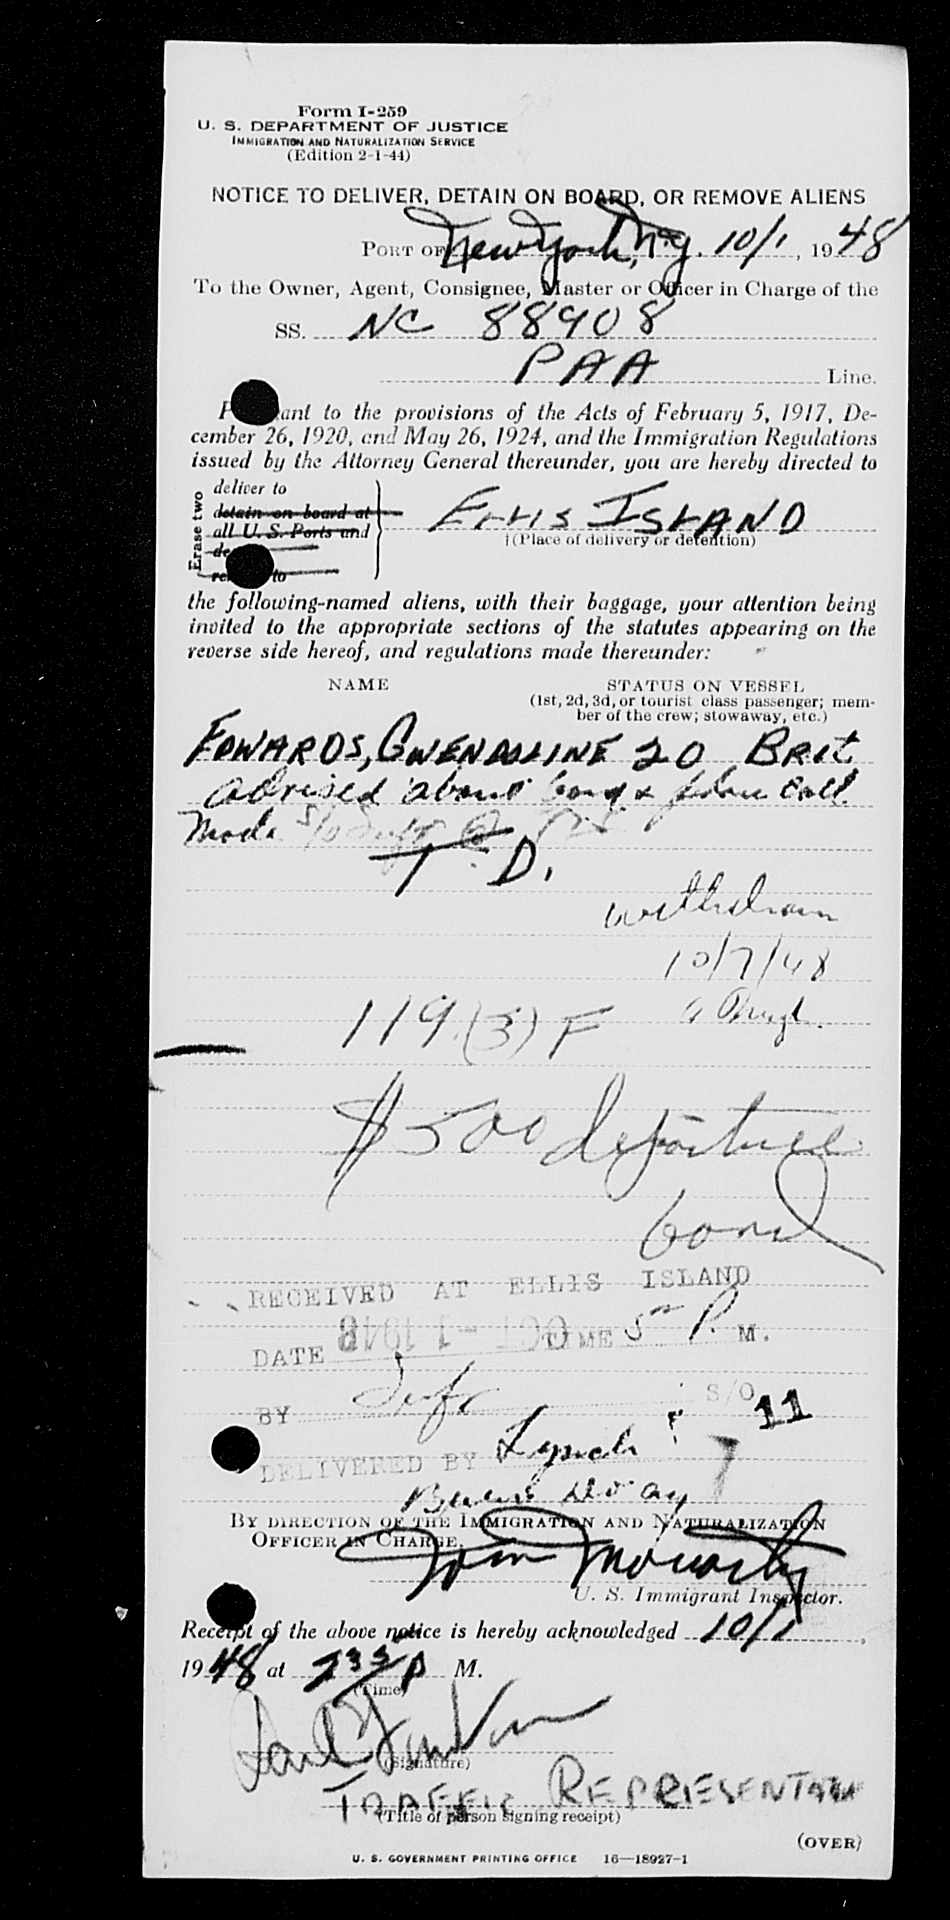 Form I-259
U. S. DEPARTMENT OF JUSTICE
IMMIGRATION AND NATURALIZATION SERVICE
(Edition 2-1-44)
NOTICE TO DELIVER, DETAIN ON BOARD, OR REMOVE ALIENS
PORT OF New York, N.Y. 10/1, 1948
To the Owner, Agent, Consignee, Master or Officer in Charge of the
SS. NC 88908
PAA Line.
ant to the provisions of the Acts of February 5, 1917, De-
cember 26, 1920, and May 26, 1924, and the Immigration Regulations
issued by the Attorney General thereunder, you are hereby directed to
Erase two
deliver to
detain on board at
all U. S. Ports and
to
ELLIS ISLAND
†(Place of delivery or detention)
the following-named aliens, with their baggage, your attention being
invited to the appropriate sections of the statutes appearing on the
reverse side hereof, and regulations made thereunder:
NAME STATUS ON VESSEL
(1st, 2d, 3d, or tourist class passenger; mem-
ber of the crew; stowaway, etc.)
EDWARDS, GWENDOLINE 20 BRIT
advised about bond & phone call
made
T. D.
withdrawn
10/7/48
119.(3) F
$500 departure
bond
RECEIVED AT ELLIS ISLAND
DATE OCT -1 1948 TIME 5 P. M.
BY S/O 11
DELIVERED BY Lynch
BY DIRECTION OF THE IMMIGRATION AND NATURALIZATION
OFFICER IN CHARGE.
U. S. Immigrant Inspector.
Receipt of the above notice is hereby acknowledged 10/1,
1948 at 235 P M.
(Time)
(Signature)
TRAFFIC REPRESENTATIVE
(Title of person signing receipt)
(OVER)
U. S. GOVERNMENT PRINTING OFFICE 16—18927-1